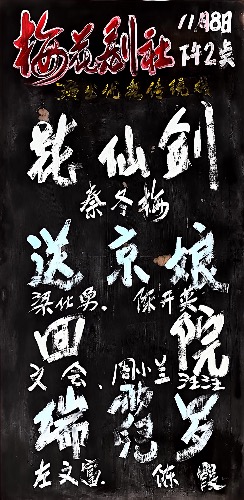 梅花剧社
11月8日
下午2点
演出优秀传统戏
花仙剑
秦冬梅
送京娘
梁仕勇、陈开英
回院
文会、周小兰 汪汪
瑞罗
左文富 陈霞